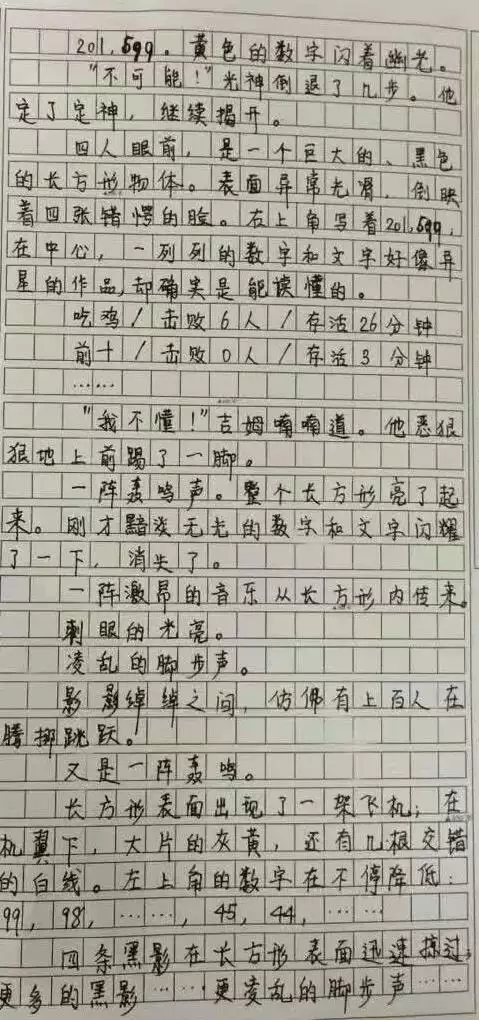 201,599。黄色的数字闪着幽光。
"不可能！"光神倒退了几步。他
定了定神，继续揭开。
四人眼前，是一个巨大的、黑色
的长方形物体。表面异常光滑，倒映
着四张错愕的脸。右上角写着201,599，
在中心，一列列的数字和文字好像异
星的作品，却确实是能读懂的。
吃鸡/击败6人/存活26分钟
前十/击败0人/存活3分钟
……
"我不懂！"吉姆喃喃道。他恶狠
狠地上前踢了一脚。
一阵轰鸣声。整个长方形亮了起
来。刚才黯淡无光的数字和文字闪耀
了一下，消失了。
一阵激昂的音乐从长方形内传来。
刺眼的光亮。
凌乱的脚步声。
影影绰绰之间，仿佛有上百人在
腾挪跳跃。
又是一阵轰鸣。
长方形表面出现了一架飞机；在
机翼下，大片的灰黄，还有几根交错
的白线。左上角的数字在不停降低：
99，98，……，45，44，……
四条黑影在长方形表面迅速掠过；
更多的黑影……更凌乱的脚步声……